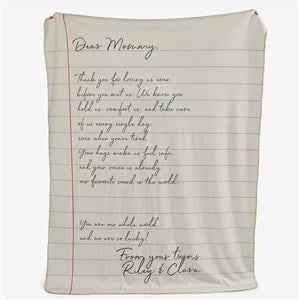 Dear Mommy,
Thank you for loving us even
before you met us. We know you
hold us, comfort us, and take care
of us every single day
even when you're tired.
Your hugs make us feel safe,
and your voice is already
our favorite sound in the world.
You are our whole world
and we are so lucky!
From your twins,
Riley & Clara